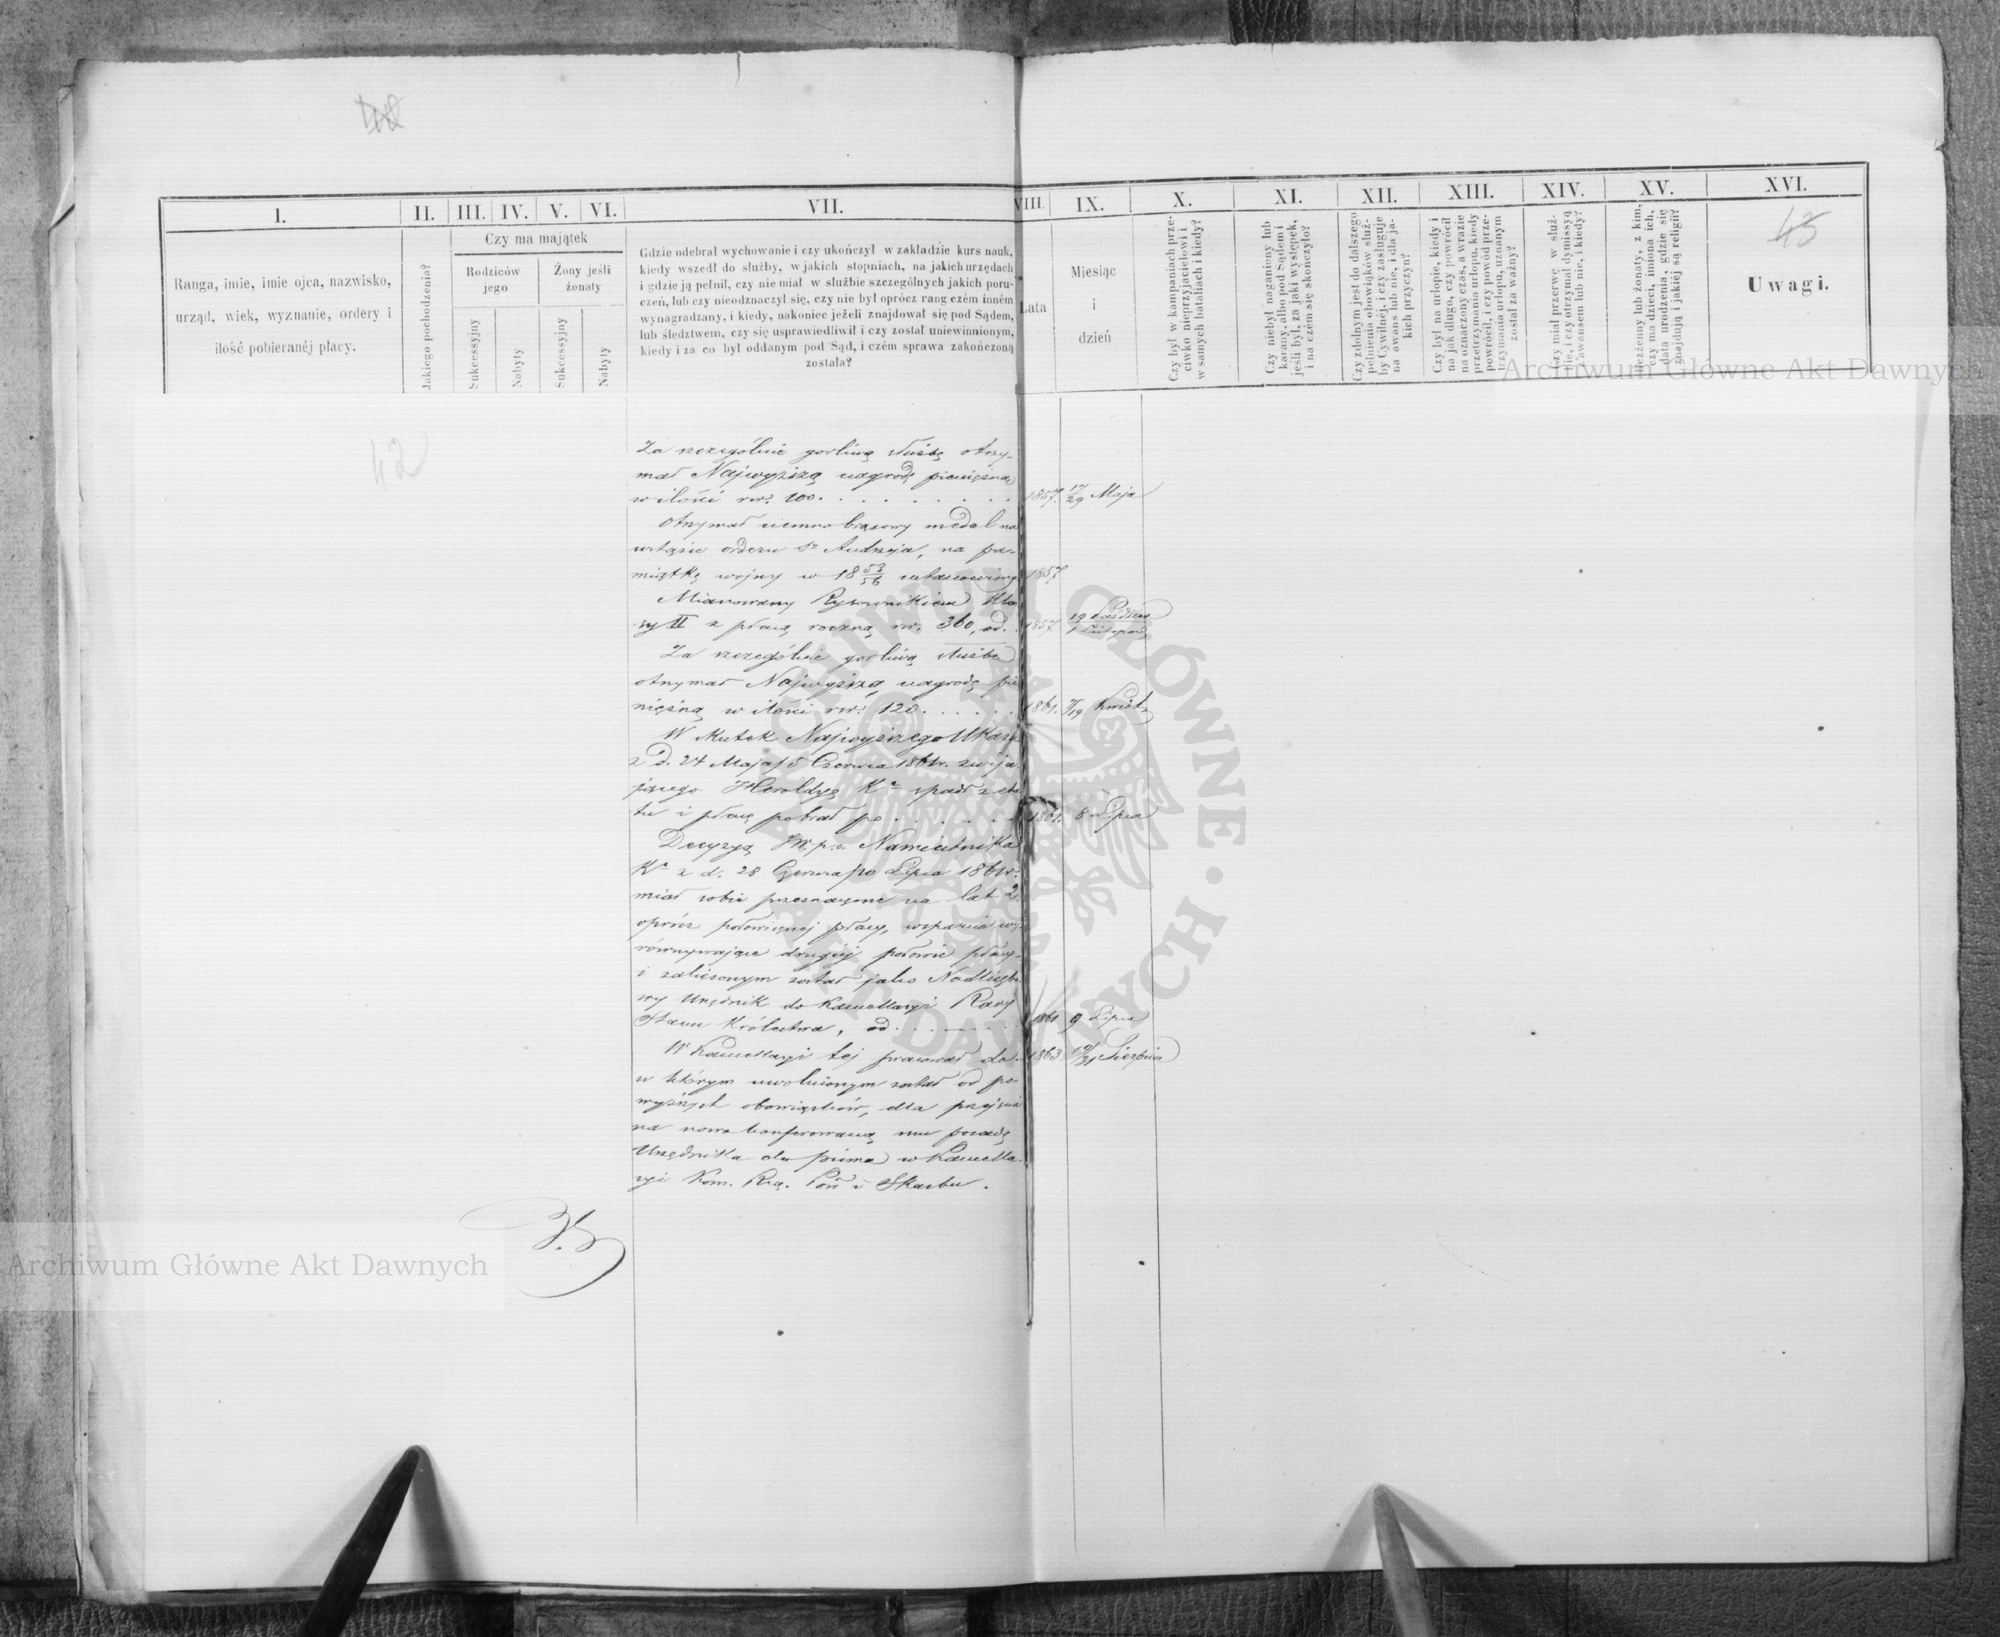 42
43
I.
II.
III.
IV.
V.
VI.
VII.
VIII.
IX.
X.
XI.
XII.
XIII.
XIV.
XV.
XVI.
Ranga, imie, imie ojca, nazwisko,
urząd, wiek, wyznanie, ordery i
ilość pobieranéj płacy.
Jakiego pochodzenia?
Czy ma majątek
Rodziców
jego
Żony jeśli
żonaty
Sukcessyjny
Nabyty
Sukcessyjny
Nabyty
Gdzie odebrał wychowanie i czy ukończył w zakładzie kurs nauk,
kiedy wszedł do służby, w jakich stopniach, na jakich urzędach
i gdzie ją pełnił, czy nie miał w służbie szczególnych jakich poru-
czeń, lub czy nieodznaczył się, czy nie był oprócz rang czém inném
wynagradzany, i kiedy, nakoniec jeżeli znajdował się pod Sądem,
lub śledztwem, czy się usprawiedliwił i czy został uniewinnionym,
kiedy i za co był oddanym pod Sąd, i czém sprawa zakończoną
została?
Lata
Miesiąc
i
dzień
Czy był w kampaniach prze-
ciwko nieprzyjacielowi i
w samych batalïach i kiedy?
Czy niebył naganiony lub
karany, albo pod Sądem i
jeśli był, za jaki występek,
i na czém się skończyło?
Czy zdolnym jest do dalszego
pełnienia obowiązków służ-
by Cywilnéj, i czy zasługuje
na awans lub nie, i dla ja-
kich przyczyn?
Czy był na urlopie, kiedy i
na jak długo, czy powrócił
na oznaczony czas, a w razie
przetrzymania urlopu, kiedy
powrócił, i czy powód prze-
trzymania urlopu, uznanym
został za ważny?
Czy miał przerwę w służ-
bie, i czy otrzymał dymissyą
z awansem lub nie, i kiedy?
Bezżenny lub żonaty, z kim,
czy ma dzieci, imiona ich,
data urodzenia, gdzie się
znajdują i jakiéj są religii?
Uwagi.
Za szczególnie gorliwą służbę otrzy-
mał Najwyższą nagrodę pieniężną
w ilości rsr. 100. 1857. 17/29 Maja
Otrzymał ciemno brązowy medal na
wstążce orderu Sgo Andrzeja, na pa-
miątkę wojny w 18 53/56 ustanowiony 1857
Mianowany Rysownikiem Kla-
sy II z płacą roczną rsr. 360, od. 1857 19 Paździer./1 Listopad
Za szczególnie gorliwą służbę
otrzymał Najwyższą nagrodę pie-
niężną w ilości rsr. 120. 1861. 7/19 Kwiet.
W skutek Najwyższego Ukazu
z d. 24 Maja/5 Czerwca 1861r. zwija-
jącego Heroldyę Ka spadł z eta-
tu i płacę pobrał po 1861. 8 Lipca
Decyzyą JW. p.o. Namiestnika
Ka z d. 28 Czerwca/10 Lipca 1861r.
miał sobie przeznaczone na lat 2
oprócz połowicznej płacy, wsparcie wy-
równywające drugiéj połowie płacy
i zaliczonym został jako Nadliczbo-
wy Urzędnik do Kancellaryi Rady
Stanu Królestwa, od 1861 9 Lipca
W Kancellaryi téj pracował do 1863. 19/31 Sierpnia
w którym uwolnionym został od po-
wyższych obowiązków, dla przejścia
na nowo konferowaną mu posadę
Urzędnika do pisma w Kancella-
ryi Kom. Rzą. Przy. i Skarbu.
Archiwum Główne Akt Dawnych
Archiwum Główne Akt Dawnych
ARCHIWUM GŁÓWNE AKT DAWNYCH